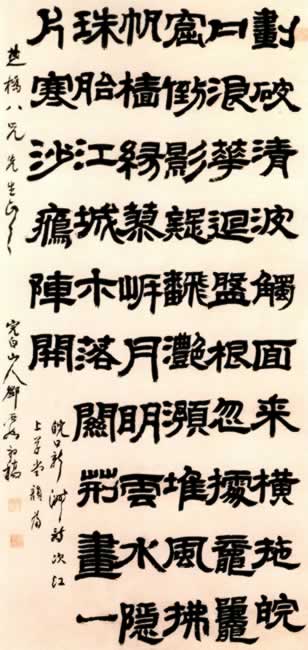 劃破清波觸面來橫拖皖
口浪華迴盤根忽據黿鼉
窟倒影疑飜灧澦堆風拂
帆檣緣岸月明雲水隱
珠胎江城木落關荊畫一
片寒沙鴈陣開
皖口新洲詩次江
上草堂韻為
楚橋八兄先生正之 完白山人鄧石如初稿